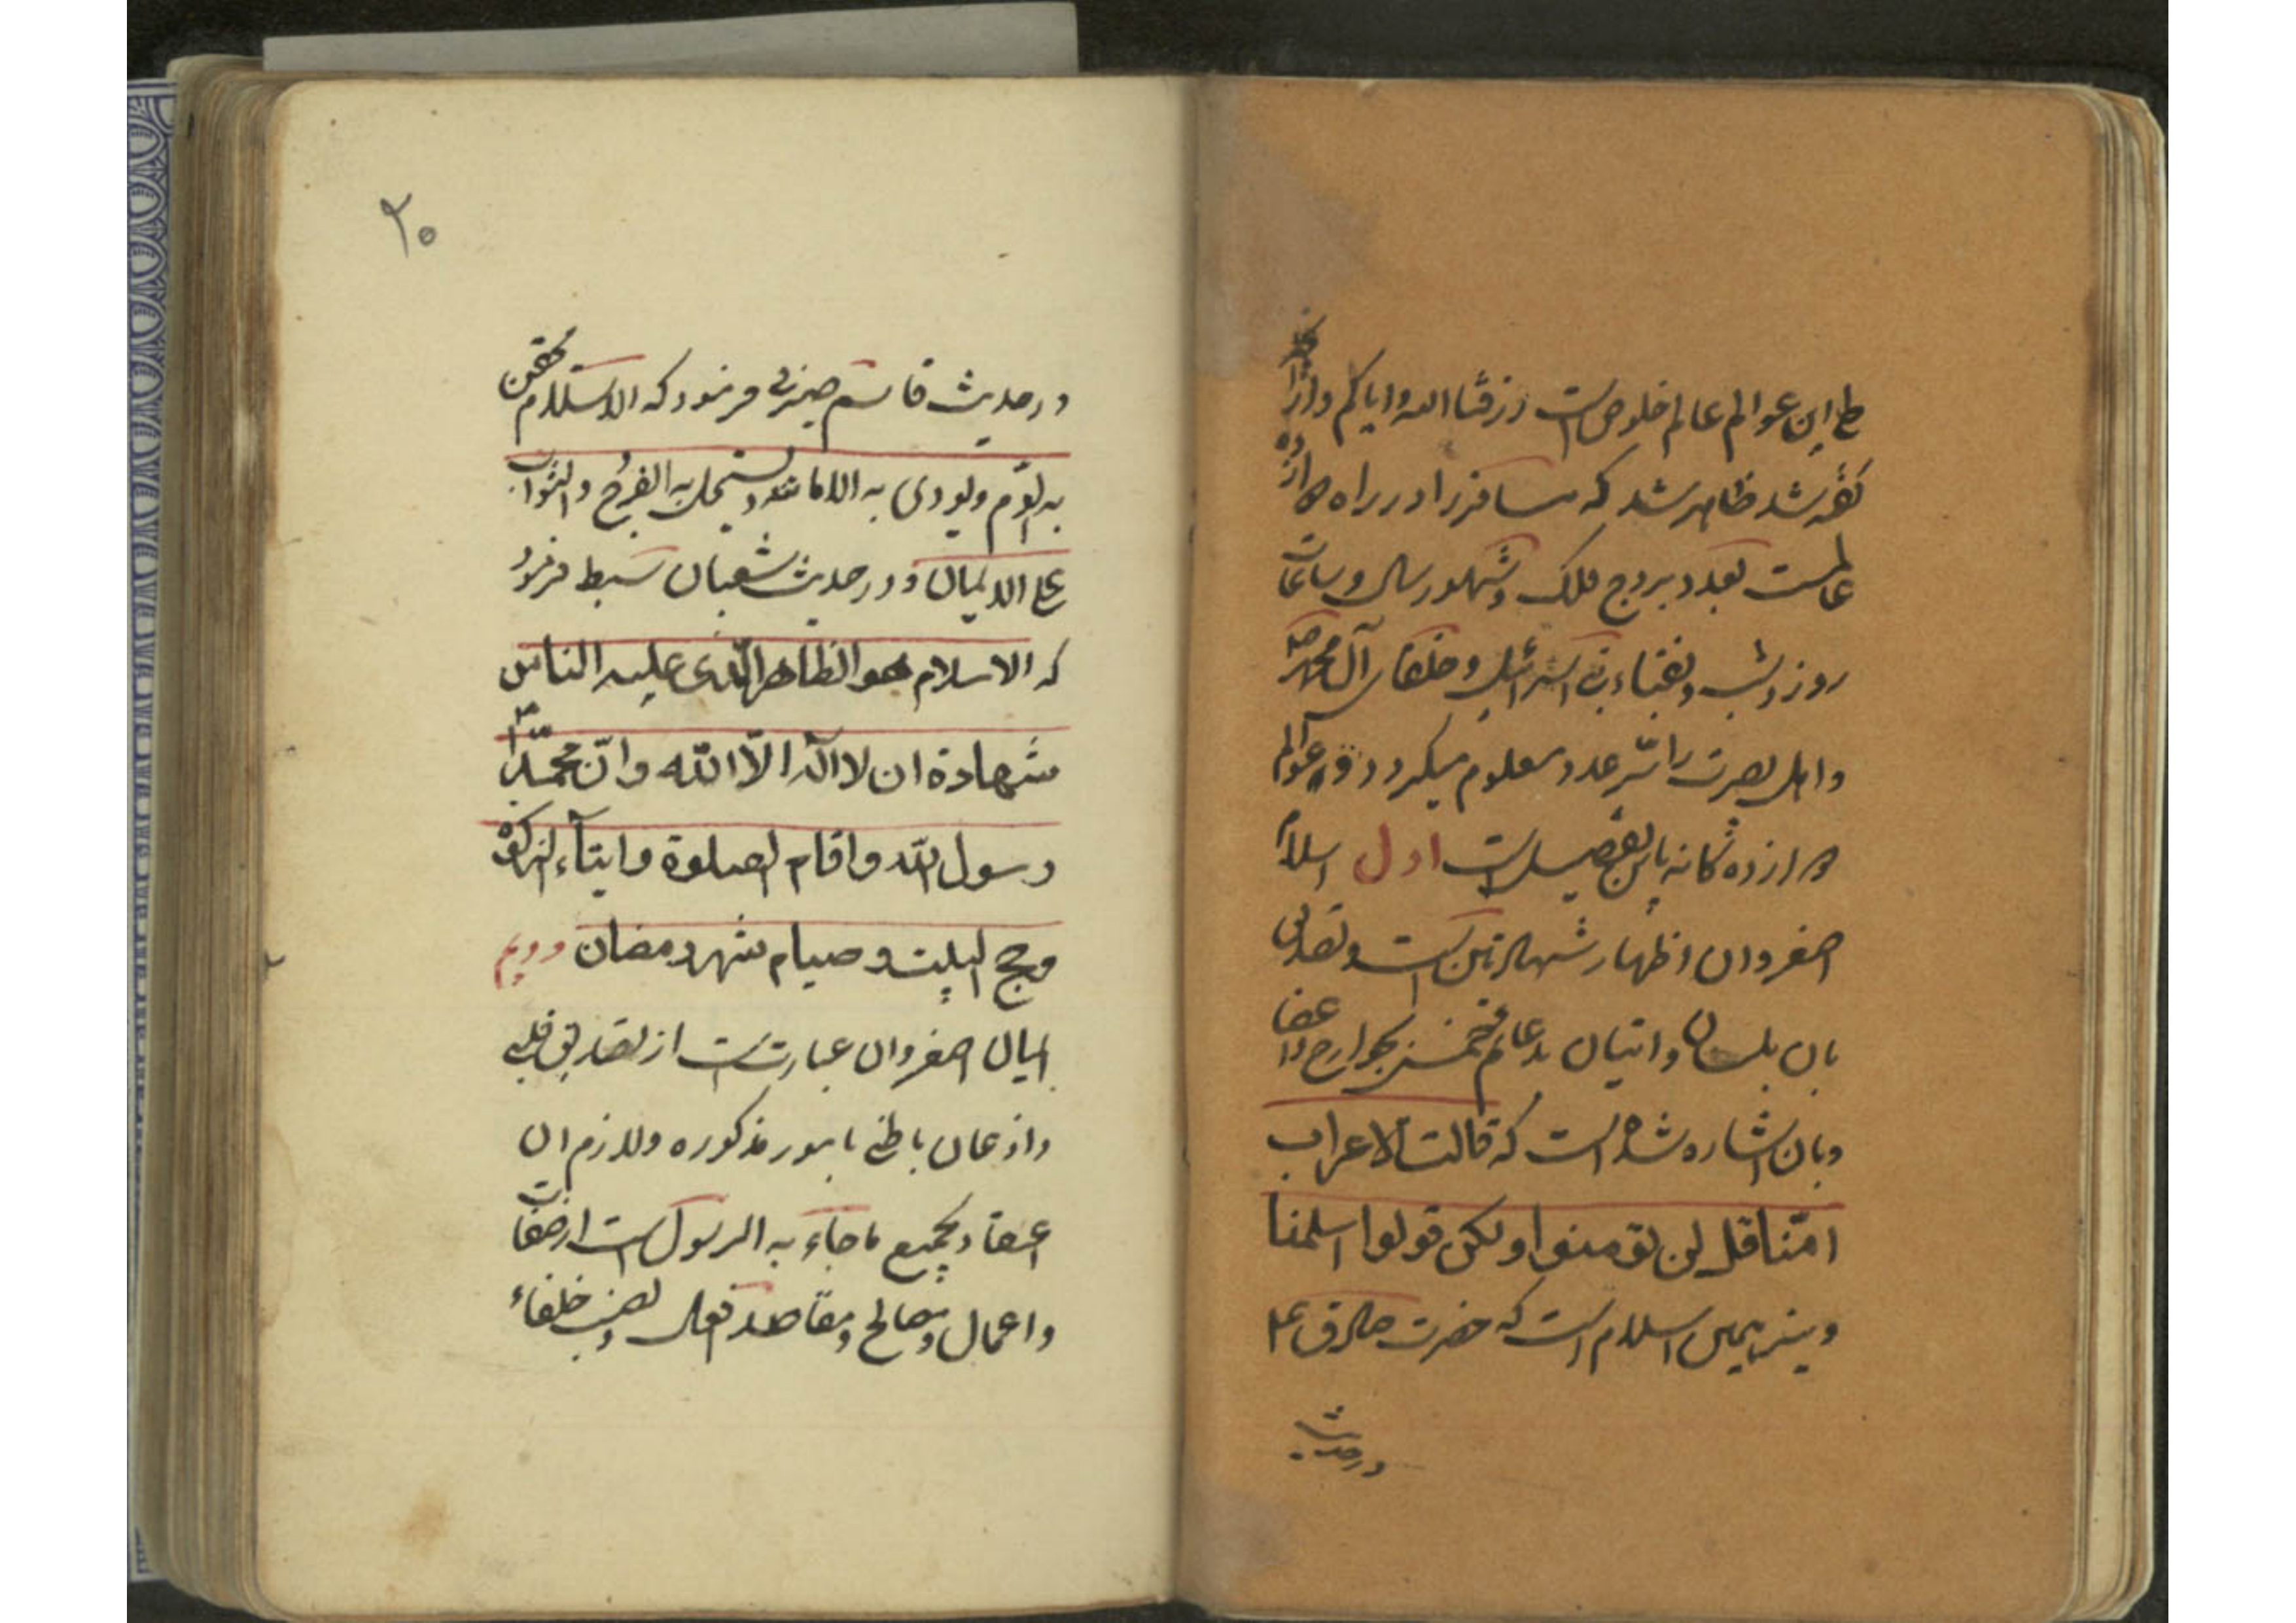 طی این عوالم عالم خلوص است رزقنا الله و ایاکم و از آنچه
گفته شد ظاهر شد که مسافر را در راه دوازده
عالمست بعدد بروج فلک و شهور سال و ساعات
روز و شب و نقباء بنی اسرائیل و خلفای آل محمد ص
و اهل بصیرت را سر عدد معلوم میگردد و عوالم
دوازده گانه باین تفصیل است اول اسلام
اصغر و ان اظهار شهادتین است و تصدیق
بان بلسان و اتیان بدعائم خمس بجوارح و اعضا
و بان اشاره شده است که قالت الاعراب
امنا قل لن تؤمنوا ولکن قولوا اسلمنا
و نیز همین اسلام است که حضرت صادق ع
در حدیث
۲۰
در حدیث قاسم صیرفی فرمود که الاسلام یحقن
به الدم و یودی به الامانة و یستحل به الفرج و الثواب
علی الایمان و در حدیث سفیان سمط فرمود
که الاسلام هو الظاهر الذی علیه الناس
شهادة ان لا اله الا الله و انّ محمدا ص
رسول الله و اقام الصلوة و ایتآء الزکوة
و حج البیت و صیام شهر رمضان دویم
ایمان اصغر و ان عبارتست از تصدیق قلبی
و اذعان باطنی بامور مذکوره و لازم ان
اعتقاد بجمیع ما جاء به الرسول است از صفات
و اعمال و مصالح و مقاصد افعال و نصب خلفاء